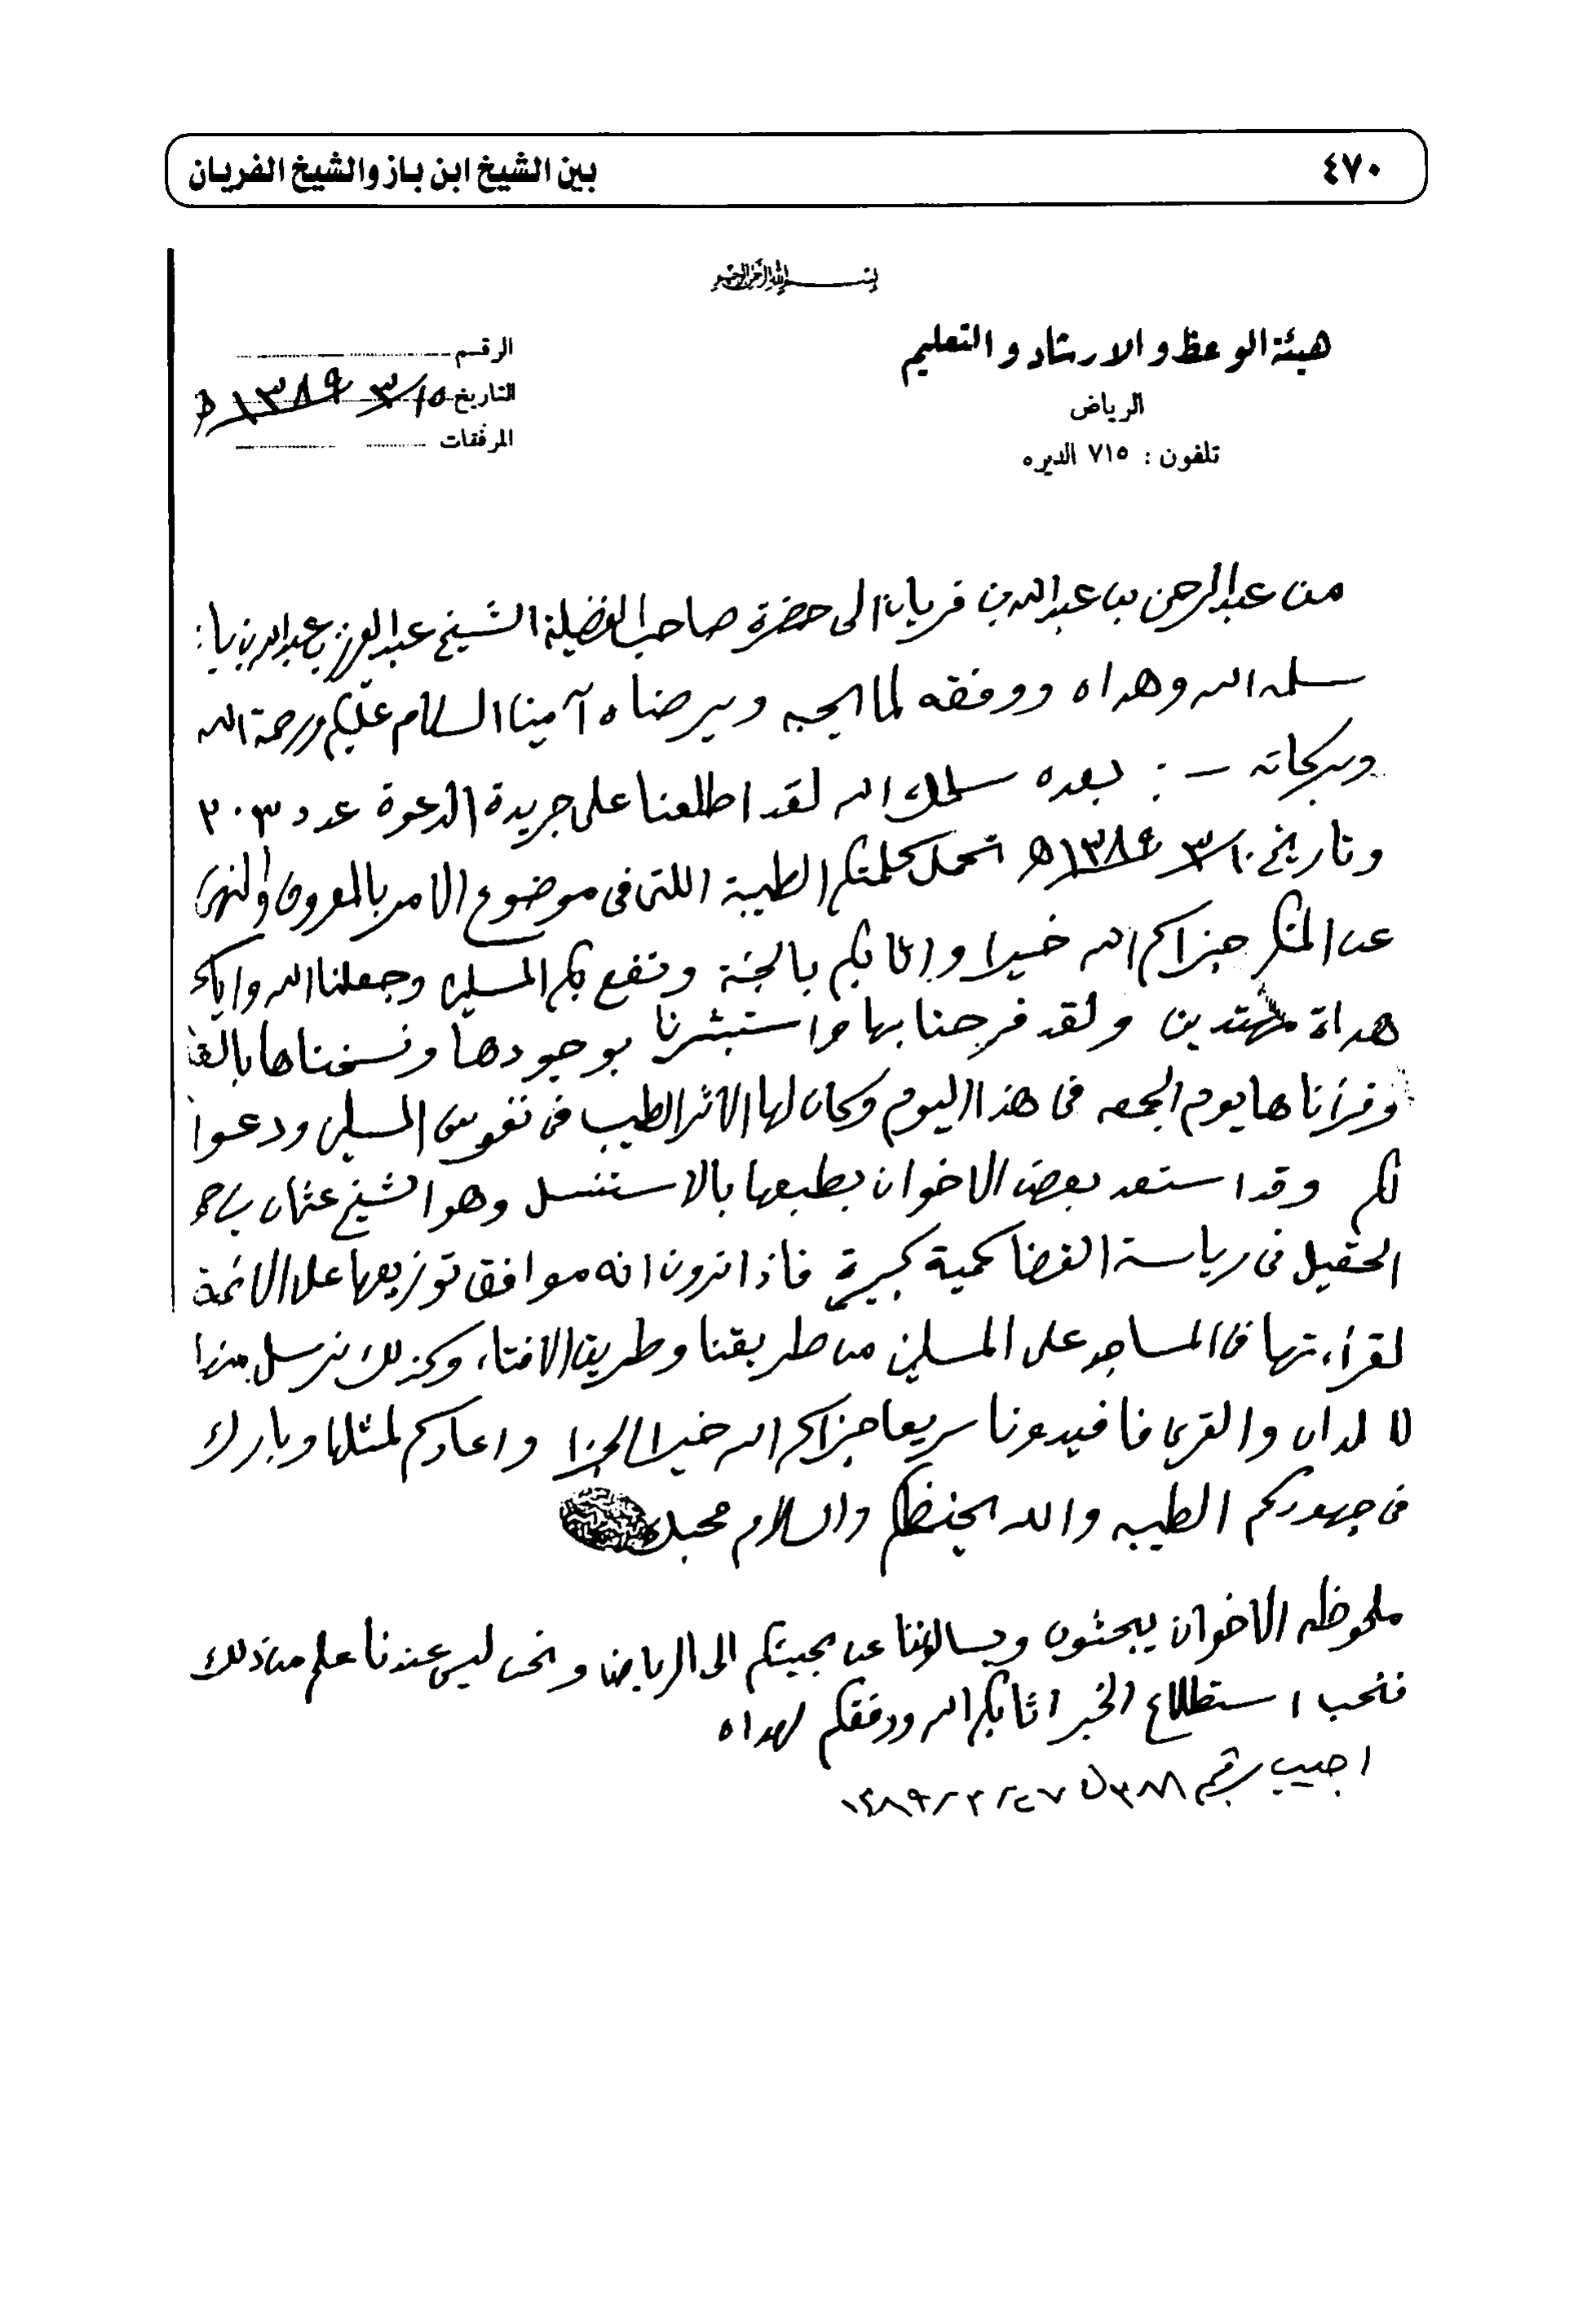 ٤٧٠
بين الشيخ ابن باز والشيخ الفريان
بسم الله الرحمن الرحيم
هيئة الوعظ والارشاد والتعليم
الرياض
تلفون : ٧١٥ الديره
الرقم
التاريخ ١٥/٣/١٣٨٩ ھ
المرفقات
من عبدالرحمن بن عبدالله بن فريان الى حضرة صاحب الفضيلة الشيخ عبدالعزيز بن عبدالله بن باز
سلمه الله وهداه ووفقه لما يحبه ويرضاه آمين السلام عليكم ورحمة الله
وبركاته - : بعده سلمك الله لقد اطلعنا على جريدة الدعوة عدد ٢٠٣
وتاريخ ١٠/٣/١٣٨٩ ھ تحمل كلمتكم الطيبة اللتى فى موضوع الامر بالمعروف والنهى
عن المنكر جزاكم الله خيرا واثابكم بالجنة ونفع بكم المسلمين وجعلنا الله واياكم
هداة مهتدين ولقد فرحنا بها واستبشرنا بوجودها ونسخناها
وقرأناها يوم الجمعه فى هذا اليوم وكان لها الاثر الطيب فى نفوس المسلمين ودعوا
لكم وقد استعد بعض الاخوان بطبعها بالاستنسل وهو الشيخ عثمان بن
الحقيل فى رياسة القضا كمية كبيرة فاذا ترون انه موافق توزيعها على الائمة
لقراءتها فى المساجد على المسلمين من طريقنا وطريق الافتاء وكذلك نرسل منها
للبلدان والقرى فافيدونا سريعا جزاكم الله خير الجزا واعادكم لمثلها وبارك
فى جهودكم الطيبه والله يحفظكم والسلام محبك
ملحوظه الاخوان يبحثون ويسالوننا عن مجيئكم الى الرياض ونحن ليس عندنا علم من ذلك
فنحب استطلاع الخبر اثابكم الله ووفقكم لهداه
اجيب برقم ٣٨٨ فى ٢٧/٣/١٣٨٩